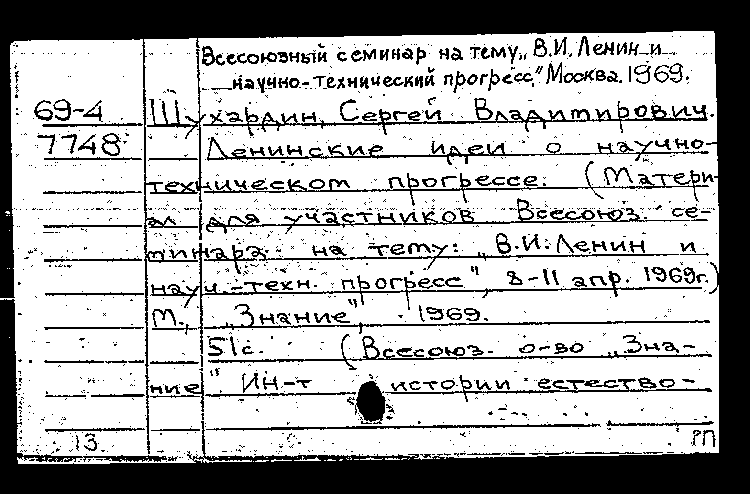 Всесоюзный семинар на тему „В.И. Ленин и
научно-технический прогресс." Москва. 1969.
69-4 Шухардин, Сергей Владимирович.
7748 Ленинские идеи о научно-
техническом прогрессе. (Матери-
ал для участников Всесоюз. се-
минара на тему: „В.И. Ленин и
науч.-техн. прогресс", 8-11 апр. 1969г.)
М., „Знание", 1969.
51с. (Всесоюз. о-во „Зна-
ние" Ин-т истории естество-
13 РП